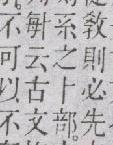 敎則必先
系之卜部。
云古文
不可以不